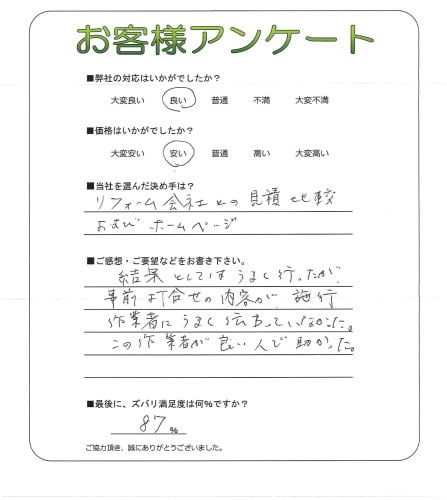 お客様アンケート
■弊社の対応はいかがでしたか?
大変良い 良い 普通 不満 大変不満
■価格はいかがでしたか?
大変安い 安い 普通 高い 大変高い
■当社を選んだ決め手は?
リフォーム会社との見積比較
およびホームページ
■ご感想・ご要望などをお書き下さい。
結果としてはうまく行ったが、
事前打合せの内容が、施行
作業者にうまく伝わっていなかった。
この作業者が良い人で助かった。
■最後に、ズバリ満足度は何%ですか?
87%
ご協力頂き、誠にありがとうございました。